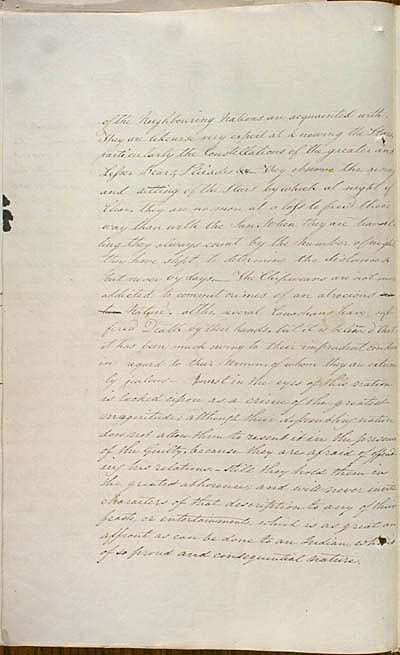 of the Neighbouring Nations are acquainted with.
They are likewise very expert at knowing the Stars,
particularly the Constellations of the greater and
Lesser Bears, Pleiades &c They observe the rising
and setting of the Stars by which at night if
Clear, they are no more at a loss to find their
way than with the Sun. When they are travel-
ling they always count by the number of nights
they have slept to determine the distance
but never by days. — The Chipewans are not
addicted to commit crimes of an atrocious
Nature. altho several Canadians have suf-
fered Death by their hands, but it is that
it has been much owing to their imprudent conduct
in regard to their Women, of whom they are
by jealous — Incest in the eyes of this nation
is looked upon as a crime of the greatest
magnitude, although their dissembling nature
does not allow them to resent it in the presence
of the Guilty, because they are afraid of offend-
ing his relations — still they hold them in
the greatest abhorence and will never invite
characters of that description to any of their
feasts, or entertainments which is as great an
affront as can be done to an Indian, who is
of so proud and consequential nature.